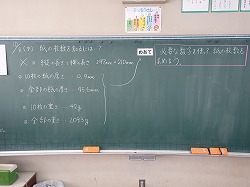 紙の枚数を知るには?
めあて
必要な数字を使って紙の枚数を
求めよう。
× ○ たての長さと横の長さ 297mm×210mm
○ 10枚の紙の厚さ … 0.9mm
○ 全部の紙の厚さ … 45.6mm
○ 10枚の重さ … 42g
○ 全部の重さ … 2093g